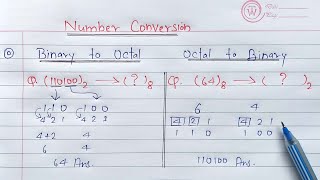 Number Conversion
Binary to Octal
Q. (110100)₂ → ( ? )₈
1 1 0 1 0 0
4 2 1 4 2 1
4+2 4
6 4
64 Ans.
Octal to Binary
Q. (64)₈ → ( ? )₂
6 4
4 2 1 4 2 1
1 1 0 1 0 0
110100 Ans.